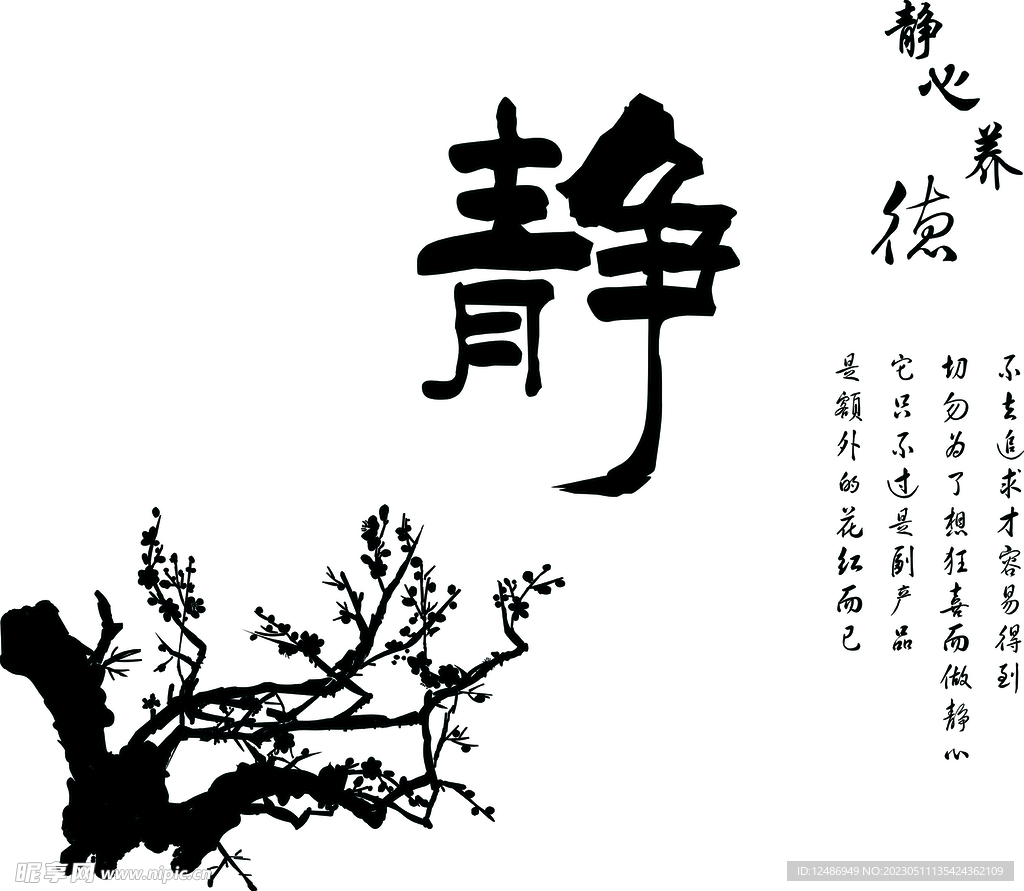 静心养德
静
不去追求才容易得到
切勿为了想狂喜而做静心
它只不过是副产品
是额外的花红而已
昵享网 www.nipic.cn
ID:12486949 NO:20230511135424362109